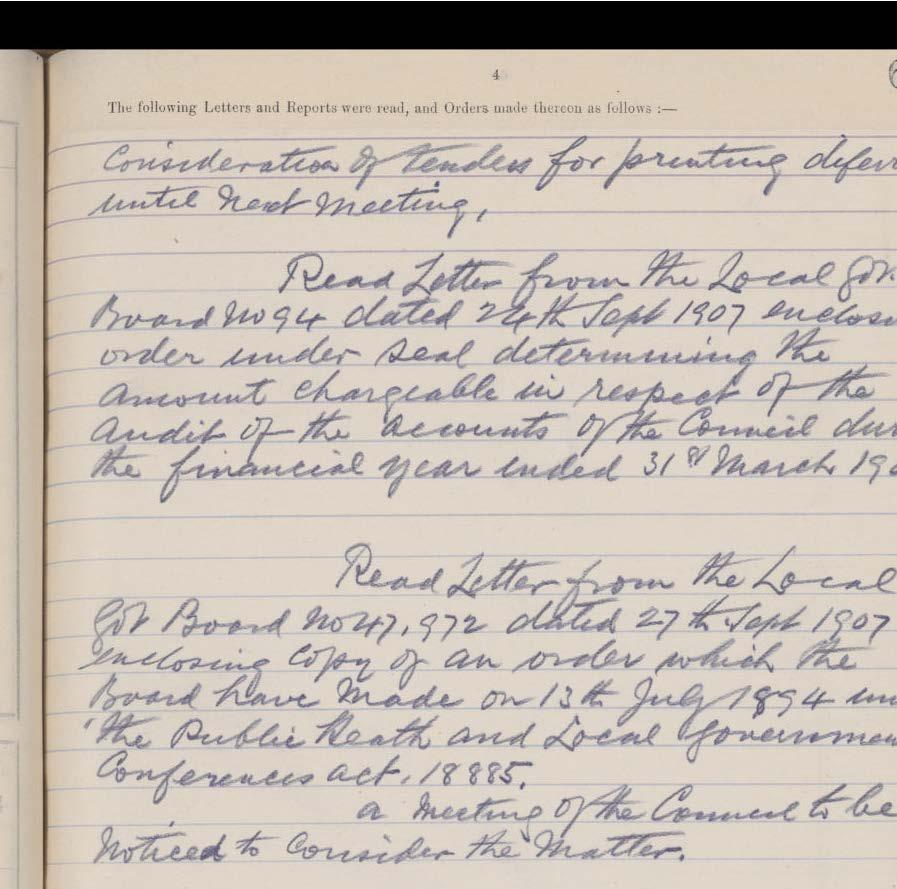 4
The following Letters and Reports were read, and Orders made thereon as follows :—
Consideration of tenders for printing defer
until next meeting,
Read Letter from the Local Gov.
Board No 94 dated 24th Sept 1907 enclosi
order under seal determining the
amount chargeable in respect of the
audit of the accounts of the Council dur
the financial year ended 31st March 190
Read Letter from the Local
Gov Board No 47,972 dated 27th Sept 1907
enclosing copy of an order which the
Board have made on 13th July 1894 un
the Public Heath and Local Governmen
Conferences act. 18885.
a meeting of the Council to be
noticed to consider the matter.